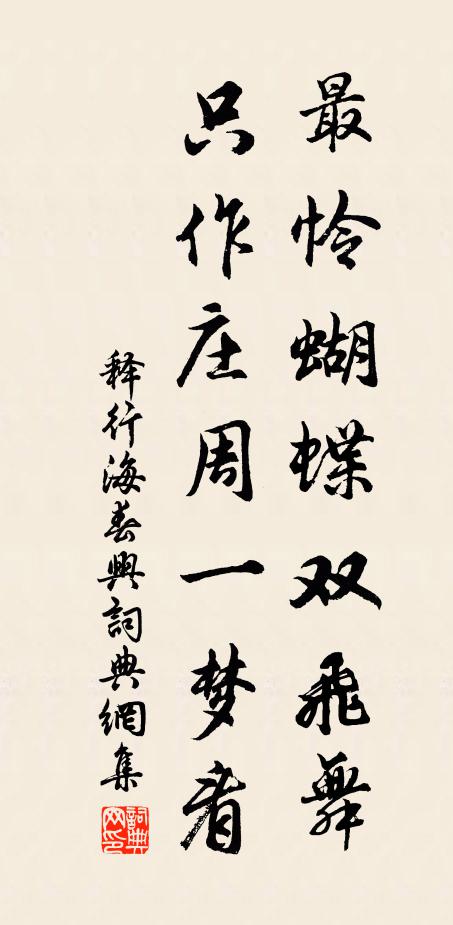 最怜蝴蝶双飞舞
只作庄周一梦看
释行海春興詞典網集
詞典网印